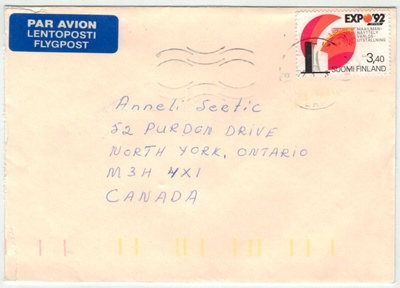 PAR AVION
LENTOPOSTI
FLYGPOST
EXPO '92
MAAILMAN-
NÄYTTELY
VÄRLDS-
UTSTÄLLNING
3,40
SUOMI FINLAND
Anneli Seetic
52 PURDON DRIVE
NORTH YORK, ONTARIO
M3H 4X1
CANADA